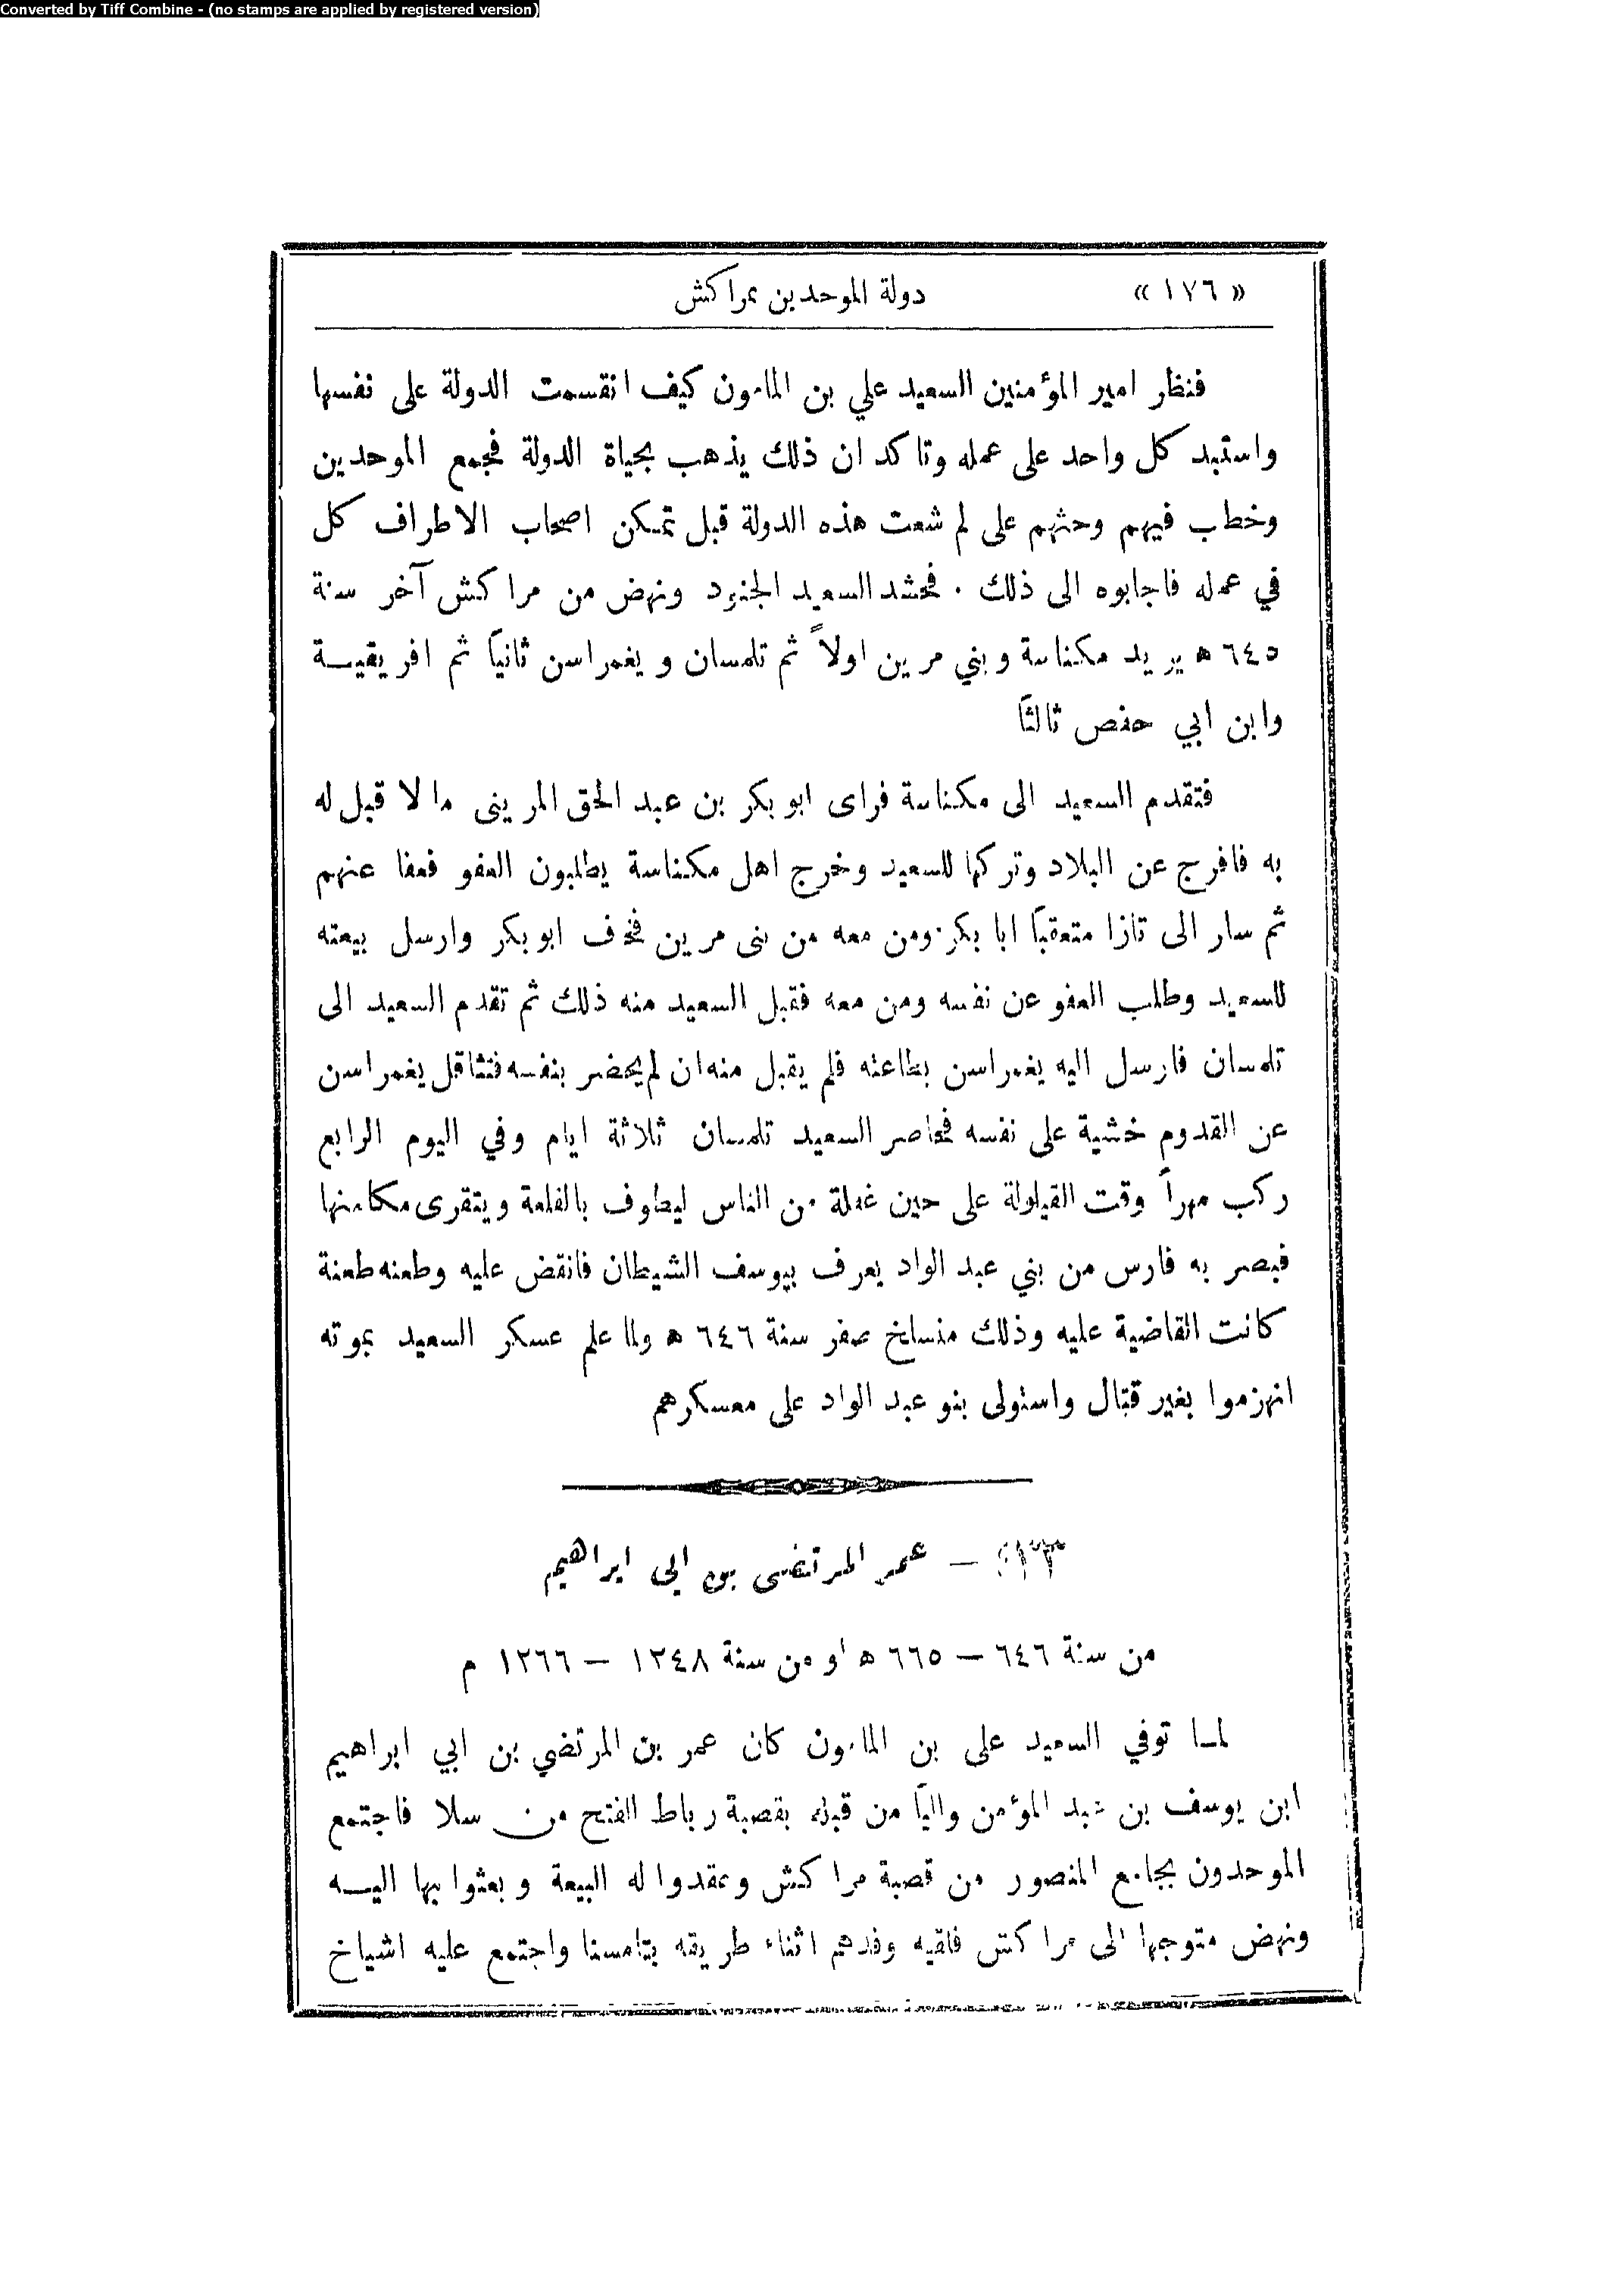 Converted by Tiff Combine - (no stamps are applied by registered version)
« ١٧٦ » دولة الموحدين بمراكش
فنظر امير المؤمنين السعيد علي بن المامون كيف انقسمت الدولة على نفسها
واستبد كل واحد على عمله وتاكد ان ذلك يذهب بحياة الدولة فجمع الموحدين
وخطب فيهم وحثهم على لم شعت هذه الدولة قبل تمكن اصحاب الاطراف كل
في عمله فاجابوه الى ذلك . فحشد السعيد الجنود ونهض من مراكش آخر سنة
٦٤٥ ه يريد مكناسة وبني مرين اولاً ثم تلمسان ويغمراسن ثانياً ثم افريقيـة
وابن ابي حفص ثالثاً
فتقدم السعيد الى مكناسة فراى ابو بكر بن عبد الحق المرينى ما لا قبل له
به فافرج عن البلاد وتركها للسعيد وخرج اهل مكناسة يطلبون العفو فعفا عنهم
ثم سار الى تازا متعقباً ابا بكر ومن معه من بنى مرين فخاف ابو بكر وارسل بيعته
للسعيد وطلب العفو عن نفسه ومن معه فقبل السعيد منه ذلك ثم تقدم السعيد الى
تلمسان فارسل اليه يغمراسن بطاعته فلم يقبل منه ان لم يحضر بنفسه فتثاقل يغمراسن
عن القدوم خشية على نفسه فحاصر السعيد تلمسان ثلاثة ايام وفي اليوم الرابع
ركب مهراً وقت القيلولة على حين غفلة من الناس ليطوف بالقلعة ويتقرى مكامنها
فبصر به فارس من بني عبد الواد يعرف بيوسف الشيطان فانقض عليه وطعنه طعنة
كانت القاضية عليه وذلك منسلخ صفر سنة ٦٤٦ ه ولما علم عسكر السعيد بموته
انهزموا بغير قتال واستولى بنو عبد الواد على معسكرهم
– عمر المرتضى بن ابي ابراهيم
من سنة ٦٤٦ – ٦٦٥ ه او من سنة ١٢٤٨ – ١٢٦٦ م
لمـا توفي السعيد على بن المامون كان عمر بن المرتضي بن ابي ابراهيم
ابن يوسف بن عبد المؤمن والياً من قبله بقصبة رباط الفتح من سلا فاجتمع
الموحدون بجامع المنصور من قصبة مراكش وعقدوا له البيعة وبعثوا بها اليـه
ونهض متوجها الى مراكش فلقيه وفدهم اثناء طريقه بتامسنا واجتمع عليه اشياخ